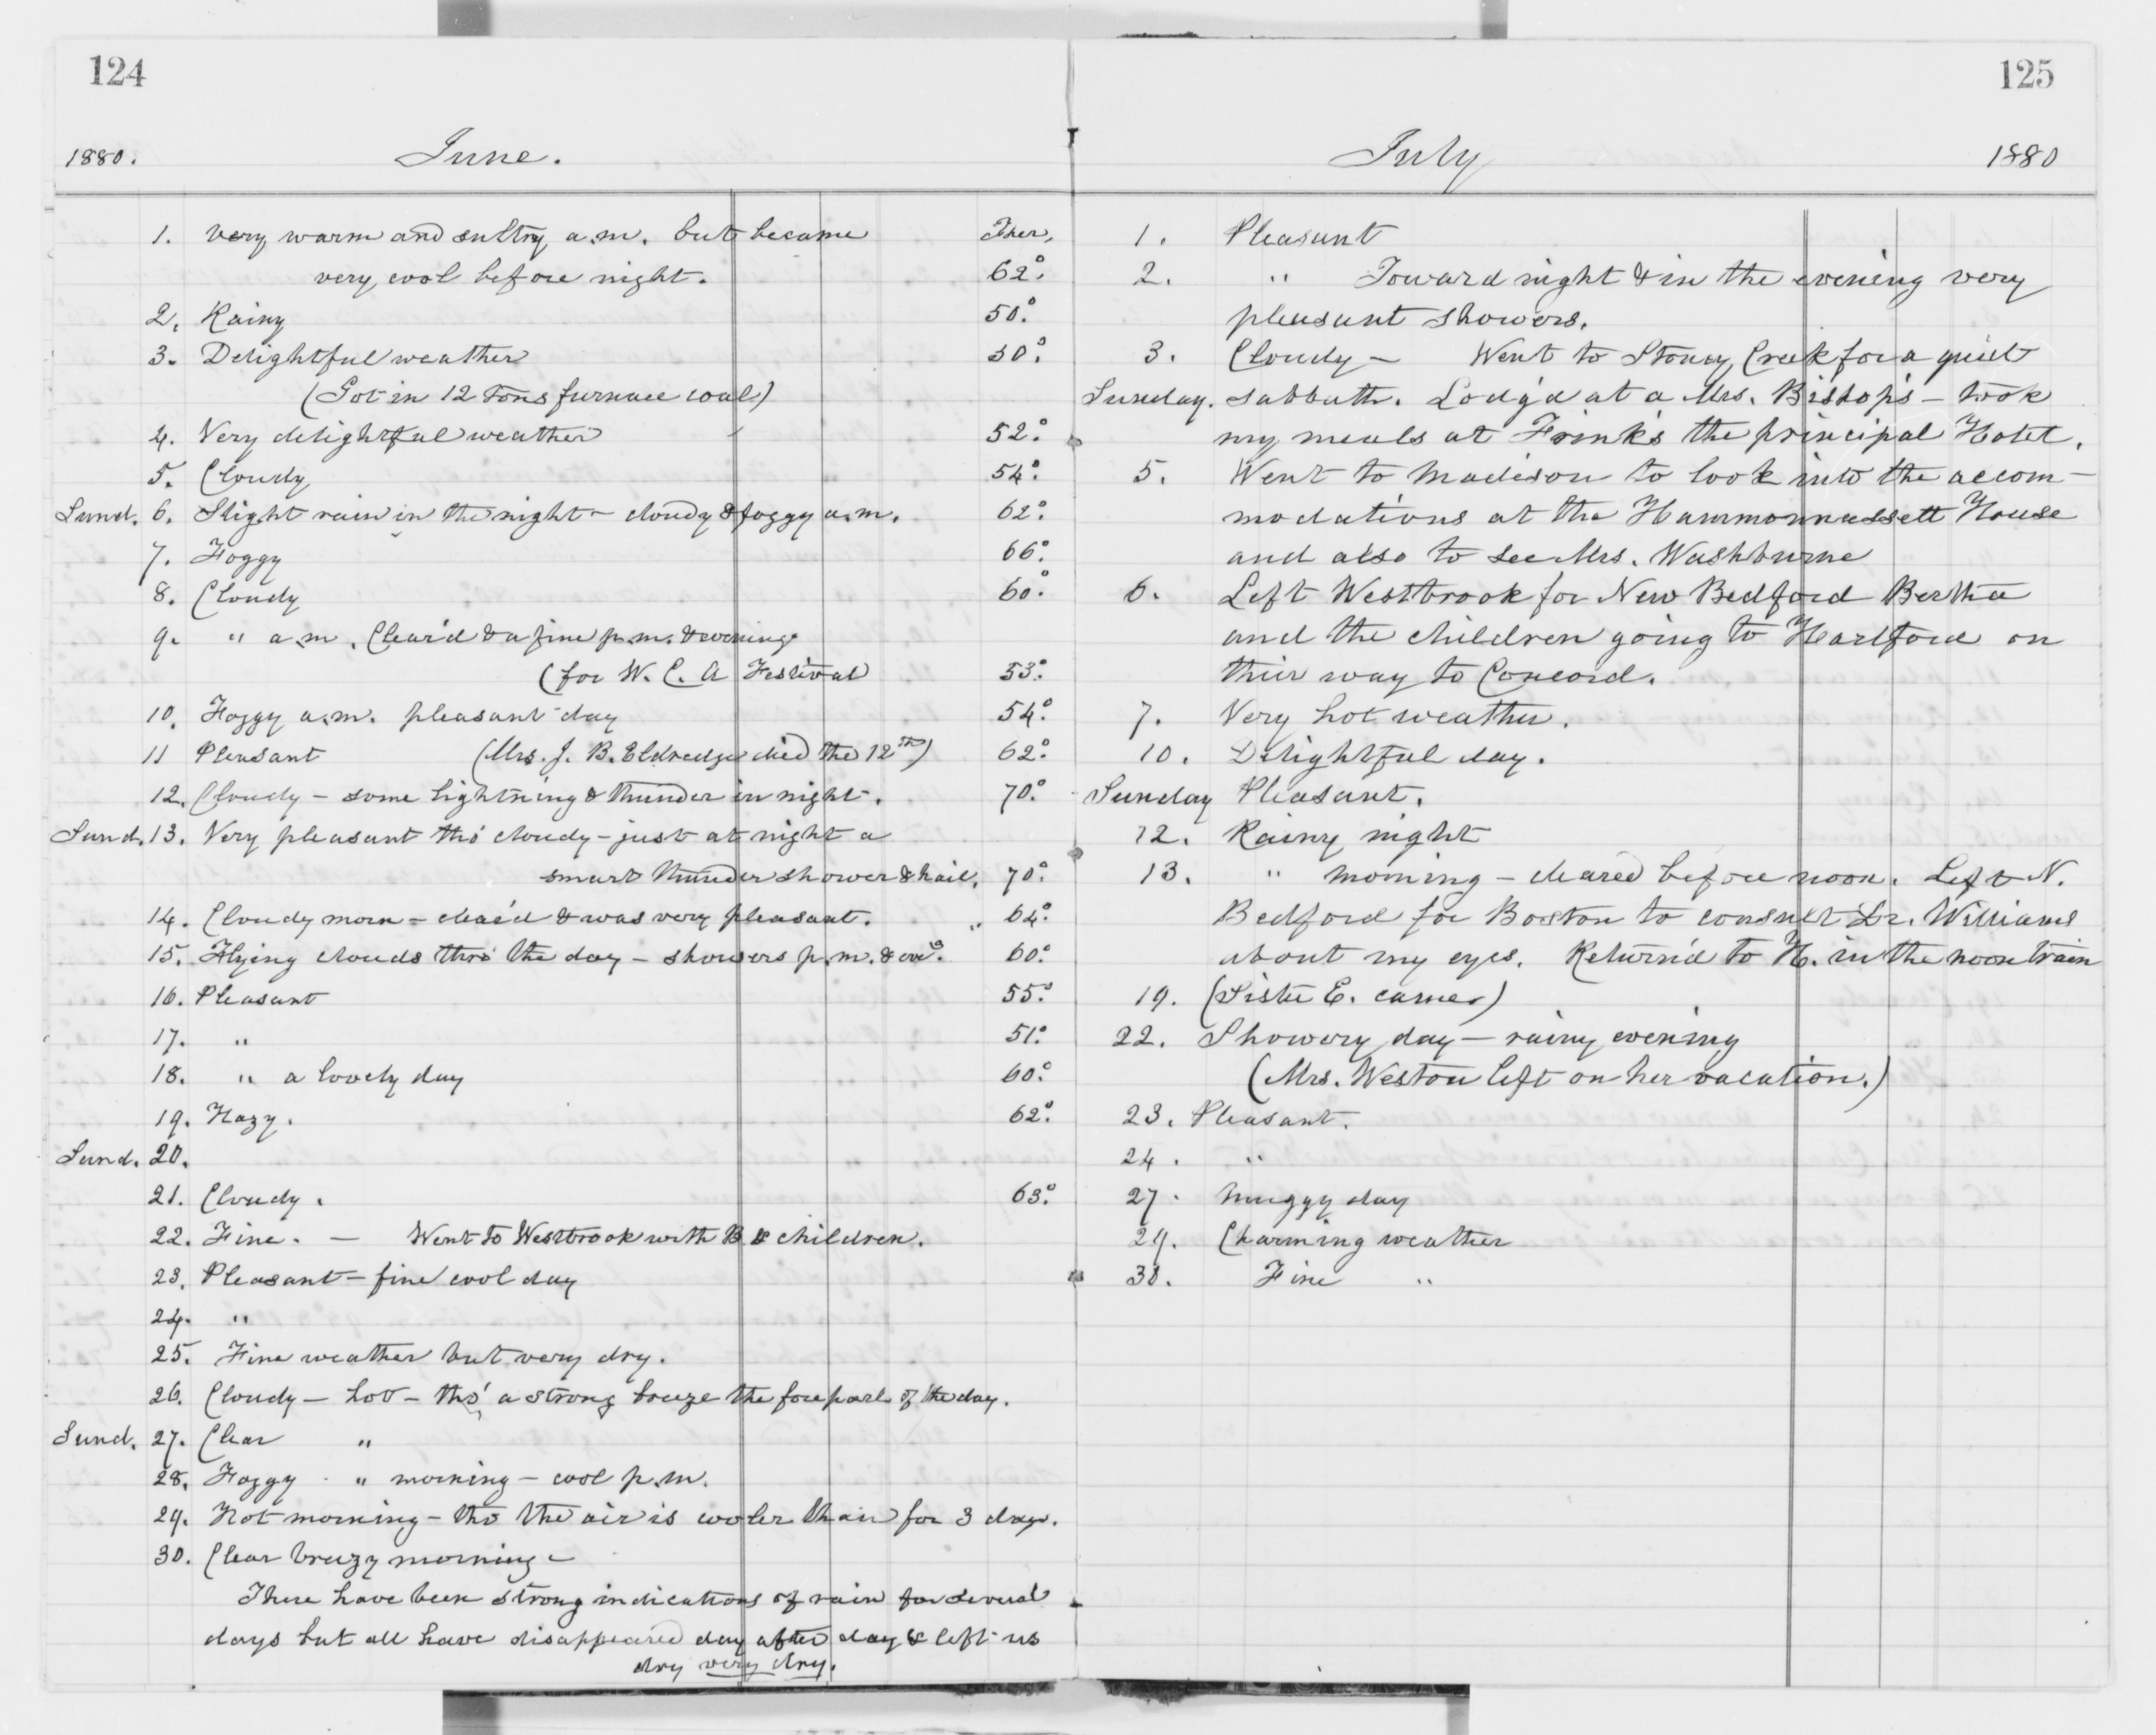 124
1880. June.
1. very warm and sultry a.m. but became Ther.
very cool before night. 62°.
2. Rainy 50°.
3. Delightful weather 50°.
(Got in 12 tons furnace coal)
4. Very delightful weather 52°.
5. Cloudy 54°.
Sund. 6. Slight rain in the night - cloudy & foggy a.m. 62°.
7. Foggy 66°.
8. Cloudy 60°.
9. " a.m. Clear'd & a fine p.m. & evening.
(for W. C. A Festival 53°.
10. Foggy a.m. pleasant day 54°.
11 Pleasant (Mrs. J. B. Eldredge died the 12th) 62°.
12. Cloudy - some lightning & thunder in night. 70°.
Sund. 13. Very pleasant tho' cloudy - just at night a
smart thunder shower & hail. 70°.
14. Cloudy morn - clear'd & was very pleasant. 64°.
15. Flying clouds thro' the day - showers p.m. & eve'g. 60°.
16. Pleasant 55°.
17. " 51°.
18. " a lovely day 60°.
19. Hazy. 62°.
Sund. 20.
21. Cloudy. 63°.
22. Fine. - Went to Westbrook with B. & children.
23. Pleasant - fine cool day
24. "
25. Fine weather but very dry.
26. Cloudy - hot - tho' a strong breeze the forepart of the day.
Sund. 27. Clear "
28. Foggy " morning - cool p.m.
29. Hot morning - tho the air is cooler than for 3 days.
30. Clear breezy morning -
There have been strong indications of rain for several
days but all have disappeared day after day & left us
dry very dry.
125
July 1880
1. Pleasant
2. " Toward night & in the evening very
pleasant showers.
3. Cloudy - Went to Stoney Creek for a quiet
Sunday. sabbath. Lodg'd at a Mrs. Bishop's - took
my meals at Frink's the principal Hotel.
5. Went to Madison to look into the accom-
modations at the Hammonnassett House
and also to see Mrs. Washburne
6. Left Westbrook for New Bedford Bertha
and the children going to Hartford on
their way to Concord.
7. Very hot weather.
10. Delightful day.
Sunday Pleasant.
12. Rainy night
13. " morning - cleared before noon. Left N.
Bedford for Boston to consult Dr. Williams
about my eyes. Return'd to H. in the noon train
19. (Sister E. came)
22. Showery day - rainy evening
(Mrs. Weston left on her vacation.)
23. Pleasant.
24. "
27. Muggy day
29. Charming weather
30. Fine "